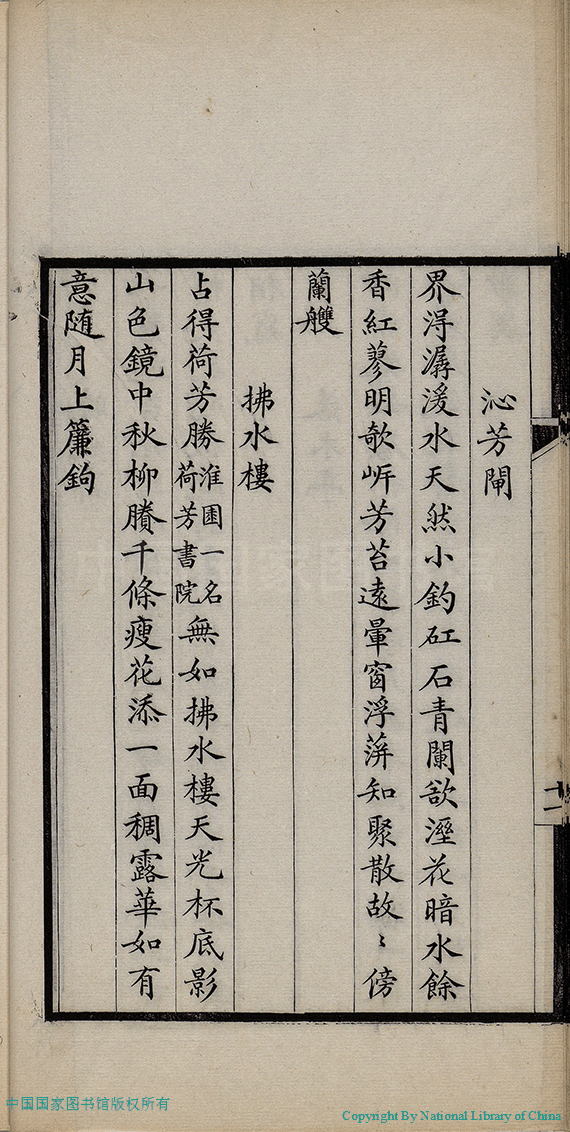 沁芳閘
界淂潺湲水天然小釣矼石青闌欲溼花暗水餘
香紅蓼明欹岓芳苔遠暈窗浮蓱知聚散故〻傍
蘭艭
拂水樓
占得荷芳勝淮園一名荷芳書院無如拂水樓天光杯底影
山色鏡中秋柳賸千條瘦花添一面稠露華如有
意随月上簾鉤
十一
中国国家图书馆版权所有
Copyright By National Library of China